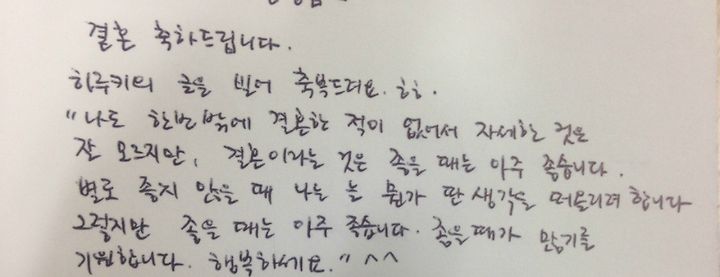 결혼 축하드립니다.
하루키의 글을 빌어 축복드려요. 히히.
"나도 한번밖에 결혼한 적이 없어서 자세한 것은
잘 모르지만, 결혼이라는 것은 좋을 때는 아주 좋습니다.
별로 좋지 않을 때 나는 늘 뭔가 딴 생각을 떠올리려 합니다
그렇지만 좋을 때는 아주 좋습니다. 좋을때가 많기를
기원합니다. 행복하세요." ^^